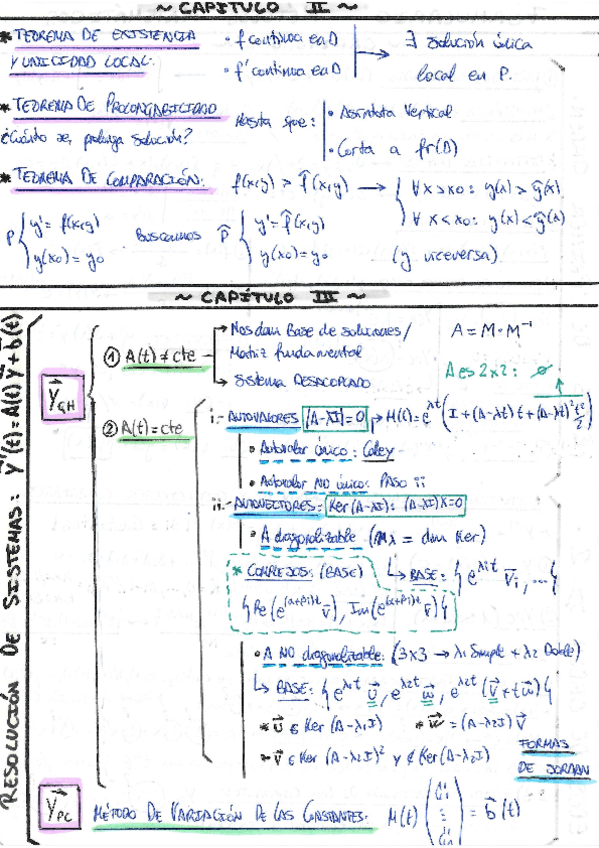 ~ CAPITULO II ~
* TEOREMA DE EXISTENCIA Y UNICIDAD LOCAL:
• f continua en D
• f' continua en D
∃ solución única local en P.
* TEOREMA DE PROLONGABILIDAD
¿Cuánto se prolonga solución?
Hasta que:
• Asíntota Vertical
• Corta a fr(D)
* TEOREMA DE COMPARACIÓN:
f(x,y) > f̂(x,y) → { ∀ x > x0: y(x) > ŷ(x)
∀ x < x0: y(x) < ŷ(x)
P { y' = f(x,y)
y(x0) = y0
BUSCAMOS P̂ { y' = f̂(x,y)
y(x0) = y0
(y viceversa)
~ CAPÍTULO III ~
RESOLUCIÓN DE SISTEMAS: Y'(t) = A(t) Y + b(t)
Y GH
① A(t) ≠ cte
→ Nos dan Base de soluciones /
Matriz fundamental
→ Sistema DESACOPLADO
A = M · M⁻¹
A es 2x2: ∅
② A(t) = cte
i.- AUTOVALORES |A-λI| = 0 → M(t) = e^λt (I + (A-λI) t + (A-λI)² t²/2)
• Autovalor único: Caley
• Autovalor NO único: PASO ii
ii.- AUTOVECTORES: Ker (A-λI): (A-λI)X = 0
• A diagonalizable (mλ = dim Ker)
↳ BASE: { e^λit v⃗i, ... }
* COMPLEJOS: (BASE)
{ Re (e^(α+βi)t v⃗), Im (e^(α+βi)t v⃗) }
• A NO diagonalizable: (3x3 → λ1 Simple + λ2 Doble)
↳ BASE: { e^λ1t u⃗, e^λ2t w⃗, e^λ2t (v⃗ + t w⃗) }
* u⃗ ∈ Ker (A-λ1I) * w⃗ = (A-λ2I) v⃗
* v⃗ ∈ Ker (A-λ2I)² y ∉ Ker (A-λ2I)
FORMAS
DE JORDAN
Y PC
MÉTODO DE VARIACIÓN DE LAS CONSTANTES: M(t) = b⃗(t)